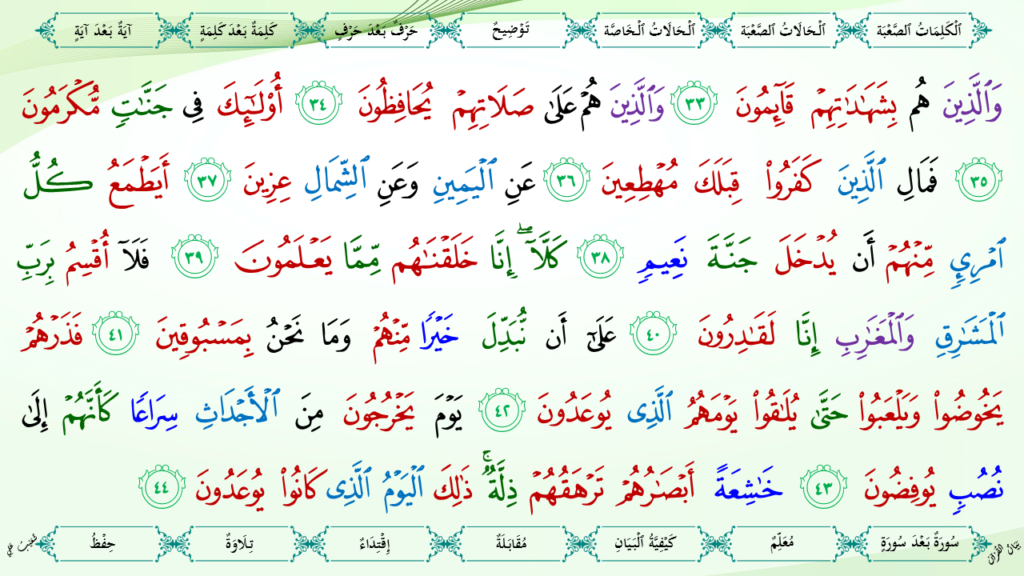 اَلْكَلِمَاتُ الصَّعْبَة
اَلْحَالَاتُ الصَّعْبَة
اَلْحَالَاتُ الْخَاصَّة
تَوْضِيحٌ
حَرْفٌ بَعْدَ حَرْفٍ
كَلِمَةٌ بَعْدَ كَلِمَةٍ
آيَةٌ بَعْدَ آيَةٍ
وَٱلَّذِينَ هُم بِشَهَٰدَٰتِهِمۡ قَآئِمُونَ ٣٣ وَٱلَّذِينَ هُمۡ عَلَىٰ صَلَاتِهِمۡ يُحَافِظُونَ ٣٤ أُوْلَٰٓئِكَ فِي جَنَّٰتٖ مُّكۡرَمُونَ
٣٥ فَمَالِ ٱلَّذِينَ كَفَرُواْ قِبَلَكَ مُهۡطِعِينَ ٣٦ عَنِ ٱلۡيَمِينِ وَعَنِ ٱلشِّمَالِ عِزِينَ ٣٧ أَيَطۡمَعُ كُلُّ
ٱمۡرِيٕٖ مِّنۡهُمۡ أَن يُدۡخَلَ جَنَّةَ نَعِيمٖ ٣٨ كَلَّآۖ إِنَّا خَلَقۡنَٰهُم مِّمَّا يَعۡلَمُونَ ٣٩ فَلَآ أُقۡسِمُ بِرَبِّ
ٱلۡمَشَٰرِقِ وَٱلۡمَغَٰرِبِ إِنَّا لَقَٰدِرُونَ ٤٠ عَلَىٰٓ أَن نُّبَدِّلَ خَيۡرٗا مِّنۡهُمۡ وَمَا نَحۡنُ بِمَسۡبُوقِينَ ٤١ فَذَرۡهُمۡ
يَخُوضُواْ وَيَلۡعَبُواْ حَتَّىٰ يُلَٰقُواْ يَوۡمَهُمُ ٱلَّذِي يُوعَدُونَ ٤٢ يَوۡمَ يَخۡرُجُونَ مِنَ ٱلۡأَجۡدَاثِ سِرَاعٗا كَأَنَّهُمۡ إِلَىٰ
نُصُبٖ يُوفِضُونَ ٤٣ خَٰشِعَةً أَبۡصَٰرُهُمۡ تَرۡهَقُهُمۡ ذِلَّةٞۚ ذَٰلِكَ ٱلۡيَوۡمُ ٱلَّذِي كَانُواْ يُوعَدُونَ ٤٤
سُورَةٌ بَعْدَ سُورَةٍ
كَيْفِيَّةُ الْبَيَانِ
مُعَلِّمٌ
مُقَابَلَةٌ
إِقْتِدَاءٌ
تِلَاوَةٌ
حِفْظٌ
بَيَانُ الْقُرْآنِ